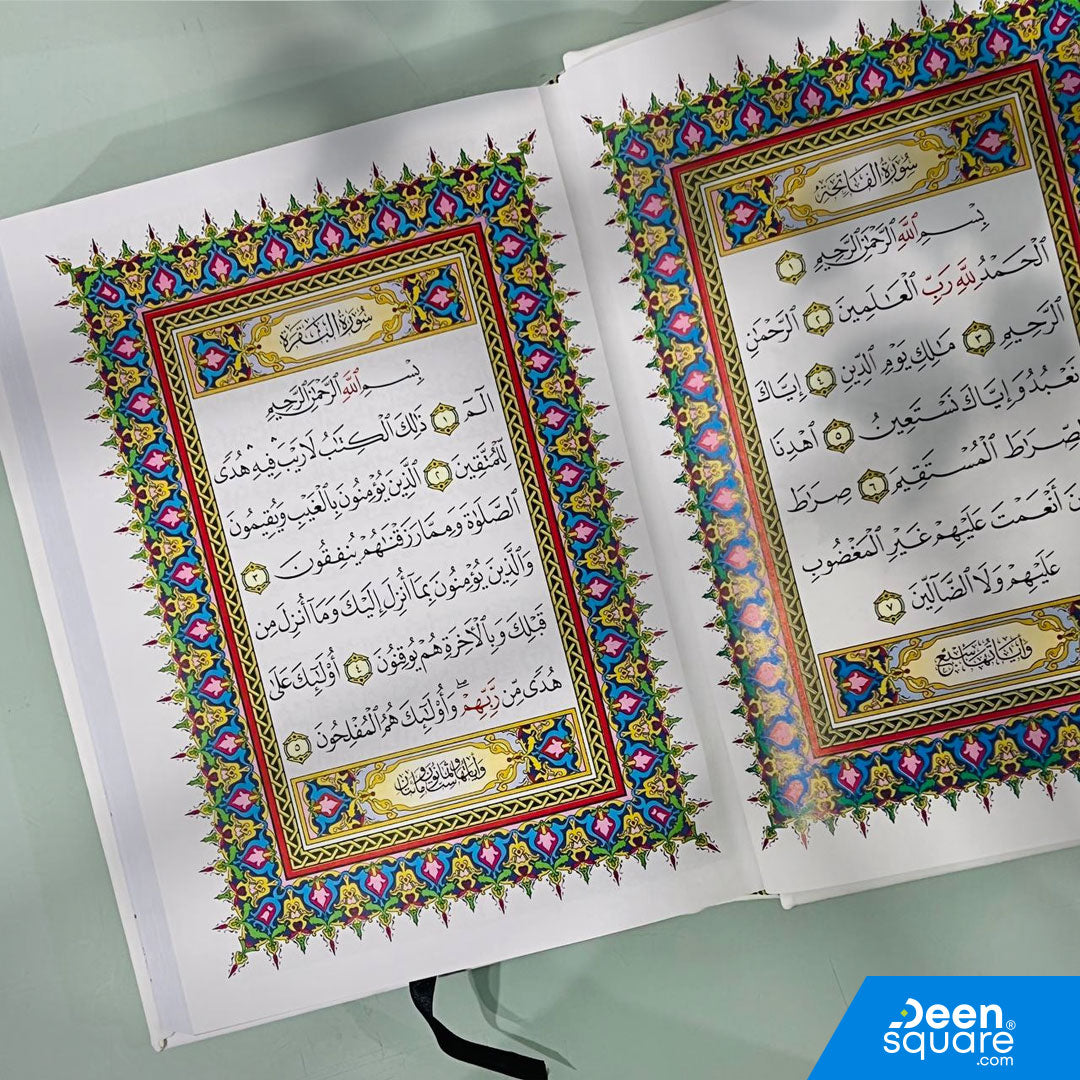 سُورَةُ الْفَاتِحَةِ
بِسْمِ ٱللَّهِ ٱلرَّحْمَٰنِ ٱلرَّحِيمِ ١
ٱلْحَمْدُ لِلَّهِ رَبِّ ٱلْعَٰلَمِينَ ٢ ٱلرَّحْمَٰنِ
ٱلرَّحِيمِ ٣ مَٰلِكِ يَوْمِ ٱلدِّينِ ٤ إِيَّاكَ
نَعْبُدُ وَإِيَّاكَ نَسْتَعِينُ ٥ ٱهْدِنَا
ٱلصِّرَٰطَ ٱلْمُسْتَقِيمَ ٦ صِرَٰطَ
أَنْعَمْتَ عَلَيْهِمْ غَيْرِ ٱلْمَغْضُوبِ
عَلَيْهِمْ وَلَا ٱلضَّآلِّينَ ٧
وَآيَاتُهَا سَبْعٌ
سُورَةُ الْبَقَرَةِ
بِسْمِ ٱللَّهِ ٱلرَّحْمَٰنِ ٱلرَّحِيمِ
الٓمٓ ١ ذَٰلِكَ ٱلْكِتَٰبُ لَا رَيْبَ ۛ فِيهِ ۛ هُدًى
لِّلْمُتَّقِينَ ٢ ٱلَّذِينَ يُؤْمِنُونَ بِٱلْغَيْبِ وَيُقِيمُونَ
ٱلصَّلَوٰةَ وَمِمَّا رَزَقْنَٰهُمْ يُنفِقُونَ ٣
وَٱلَّذِينَ يُؤْمِنُونَ بِمَآ أُنزِلَ إِلَيْكَ وَمَآ أُنزِلَ مِن
قَبْلِكَ وَبِٱلْءَاخِرَةِ هُمْ يُوقِنُونَ ٤ أُو۟لَٰٓئِكَ عَلَىٰ
هُدًى مِّن رَّبِّهِمْ ۖ وَأُو۟لَٰٓئِكَ هُمُ ٱلْمُفْلِحُونَ ٥
وَآيَاتُهَا سِتٌّ وَثَمَانُونَ وَمِائَتَانِ
Deen
square®
.com